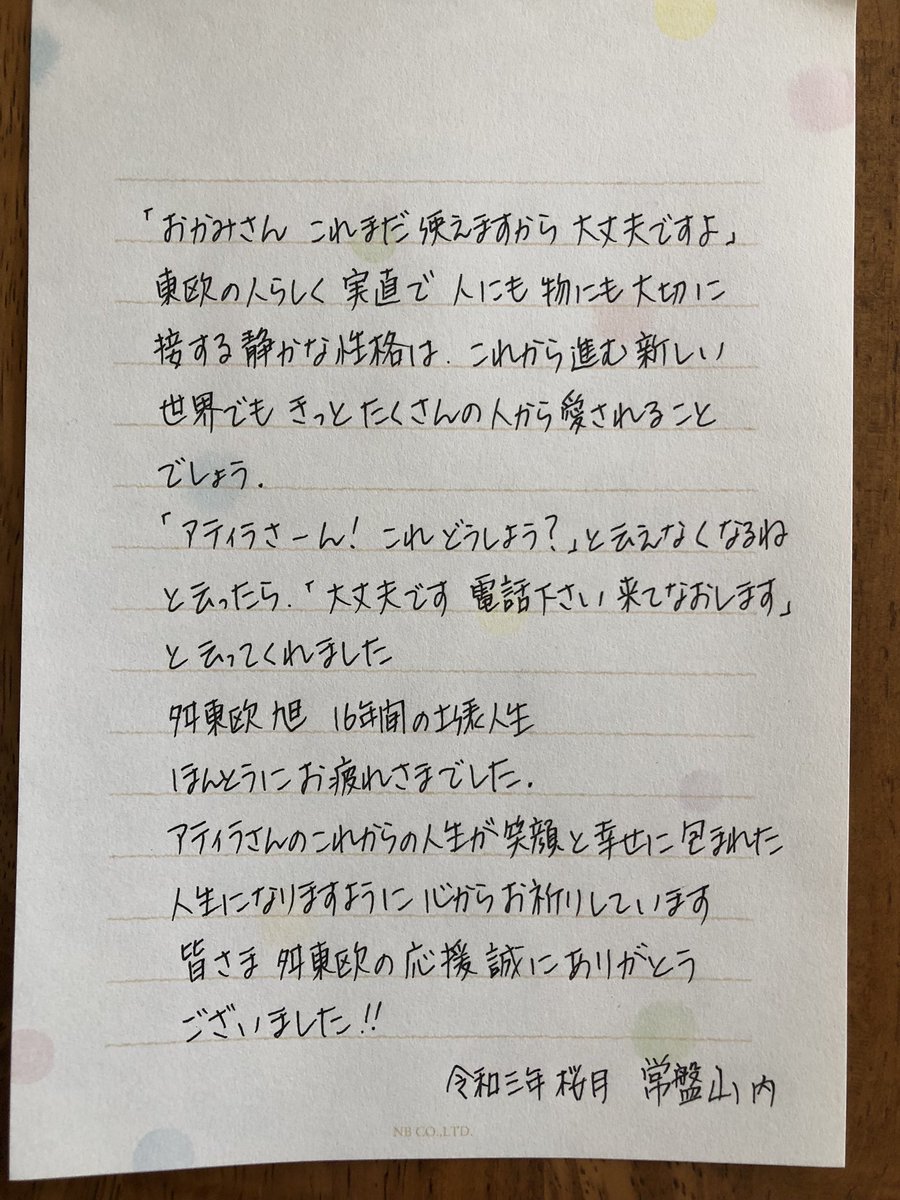 「おかみさん これまだ使えますから 大丈夫ですよ」
東欧の人らしく 実直で 人にも 物にも 大切に
接する静かな性格は. これから進む 新しい
世界でも きっと たくさんの人から愛されること
でしょう.
「アティラさーん! これ どうしよう?」と云えなくなるね
と云ったら.「大丈夫です 電話下さい 来てなおします」
と云ってくれました
舛東欧 旭 16年間の土俵人生
ほんとうに お疲れさまでした.
アティラさんのこれからの人生が 笑顔と幸せに包まれた
人生になりますように 心からお祈りしています
皆さま 舛東欧の応援 誠にありがとう
ございました!!
令和三年 桜月 常盤山 内
NB CO.,LTD.